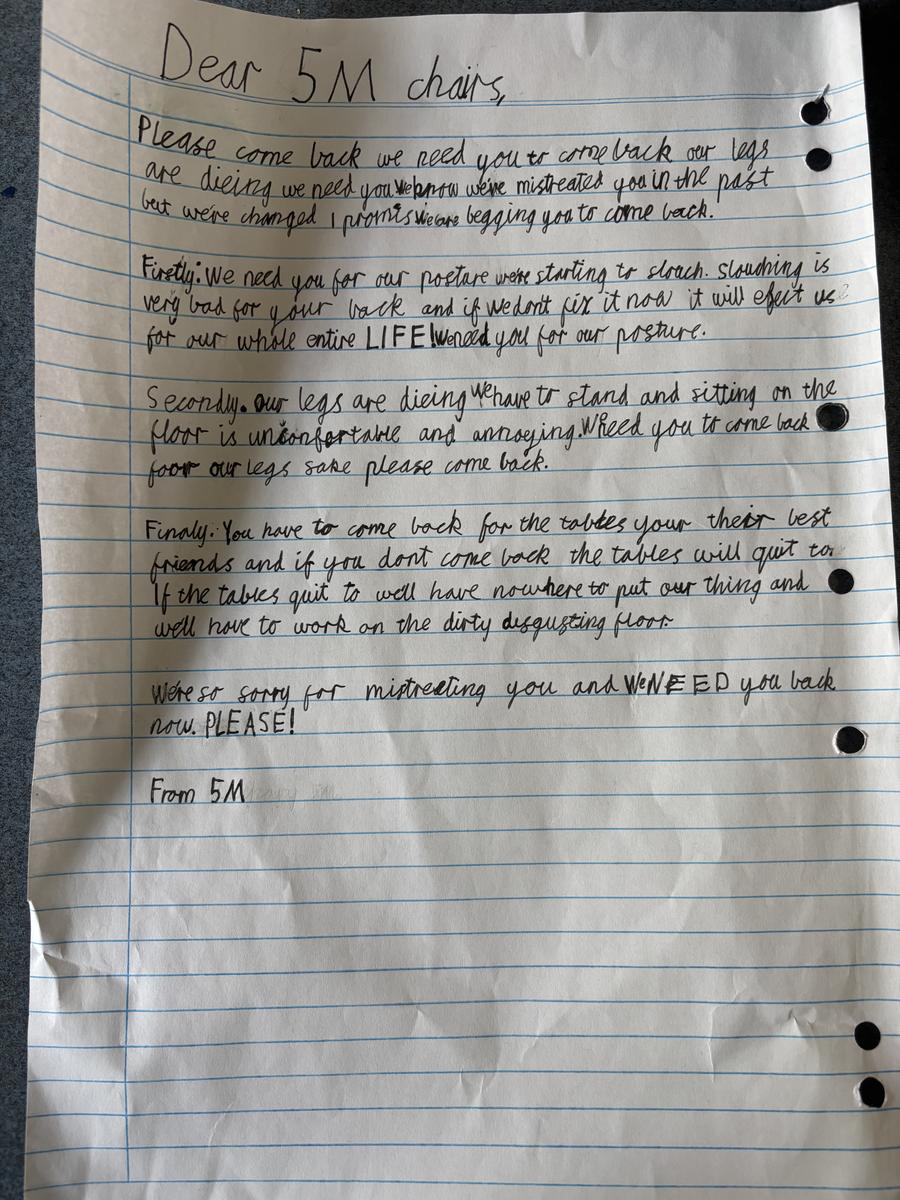 Dear 5M chairs,
Please come back we need you to come back our legs
are dieing we need you we know we've mistreated you in the past
but we're changed I promis we are begging you to come back.
Firstly: We need you for our postare we're starting to slouch. Slouching is
very bad for your back and if we don't fix it now it will efect us
for our whole entire LIFE! We need you for our posture.
Secondly. our legs are dieing we have to stand and sitting on the
floor is unconfortable and annoying. We need you to come back
foor our legs sake please come back.
Finaly. You have to come back for the tables your their best
friends and if you dont come back the tables will quit to.
If the tables quit to we'll have nowhere to put our thing and
we'll have to work on the dirty disgusting floor.
We're so sorry for mistreeting you and We NEED you back
now. PLEASE!
From 5M